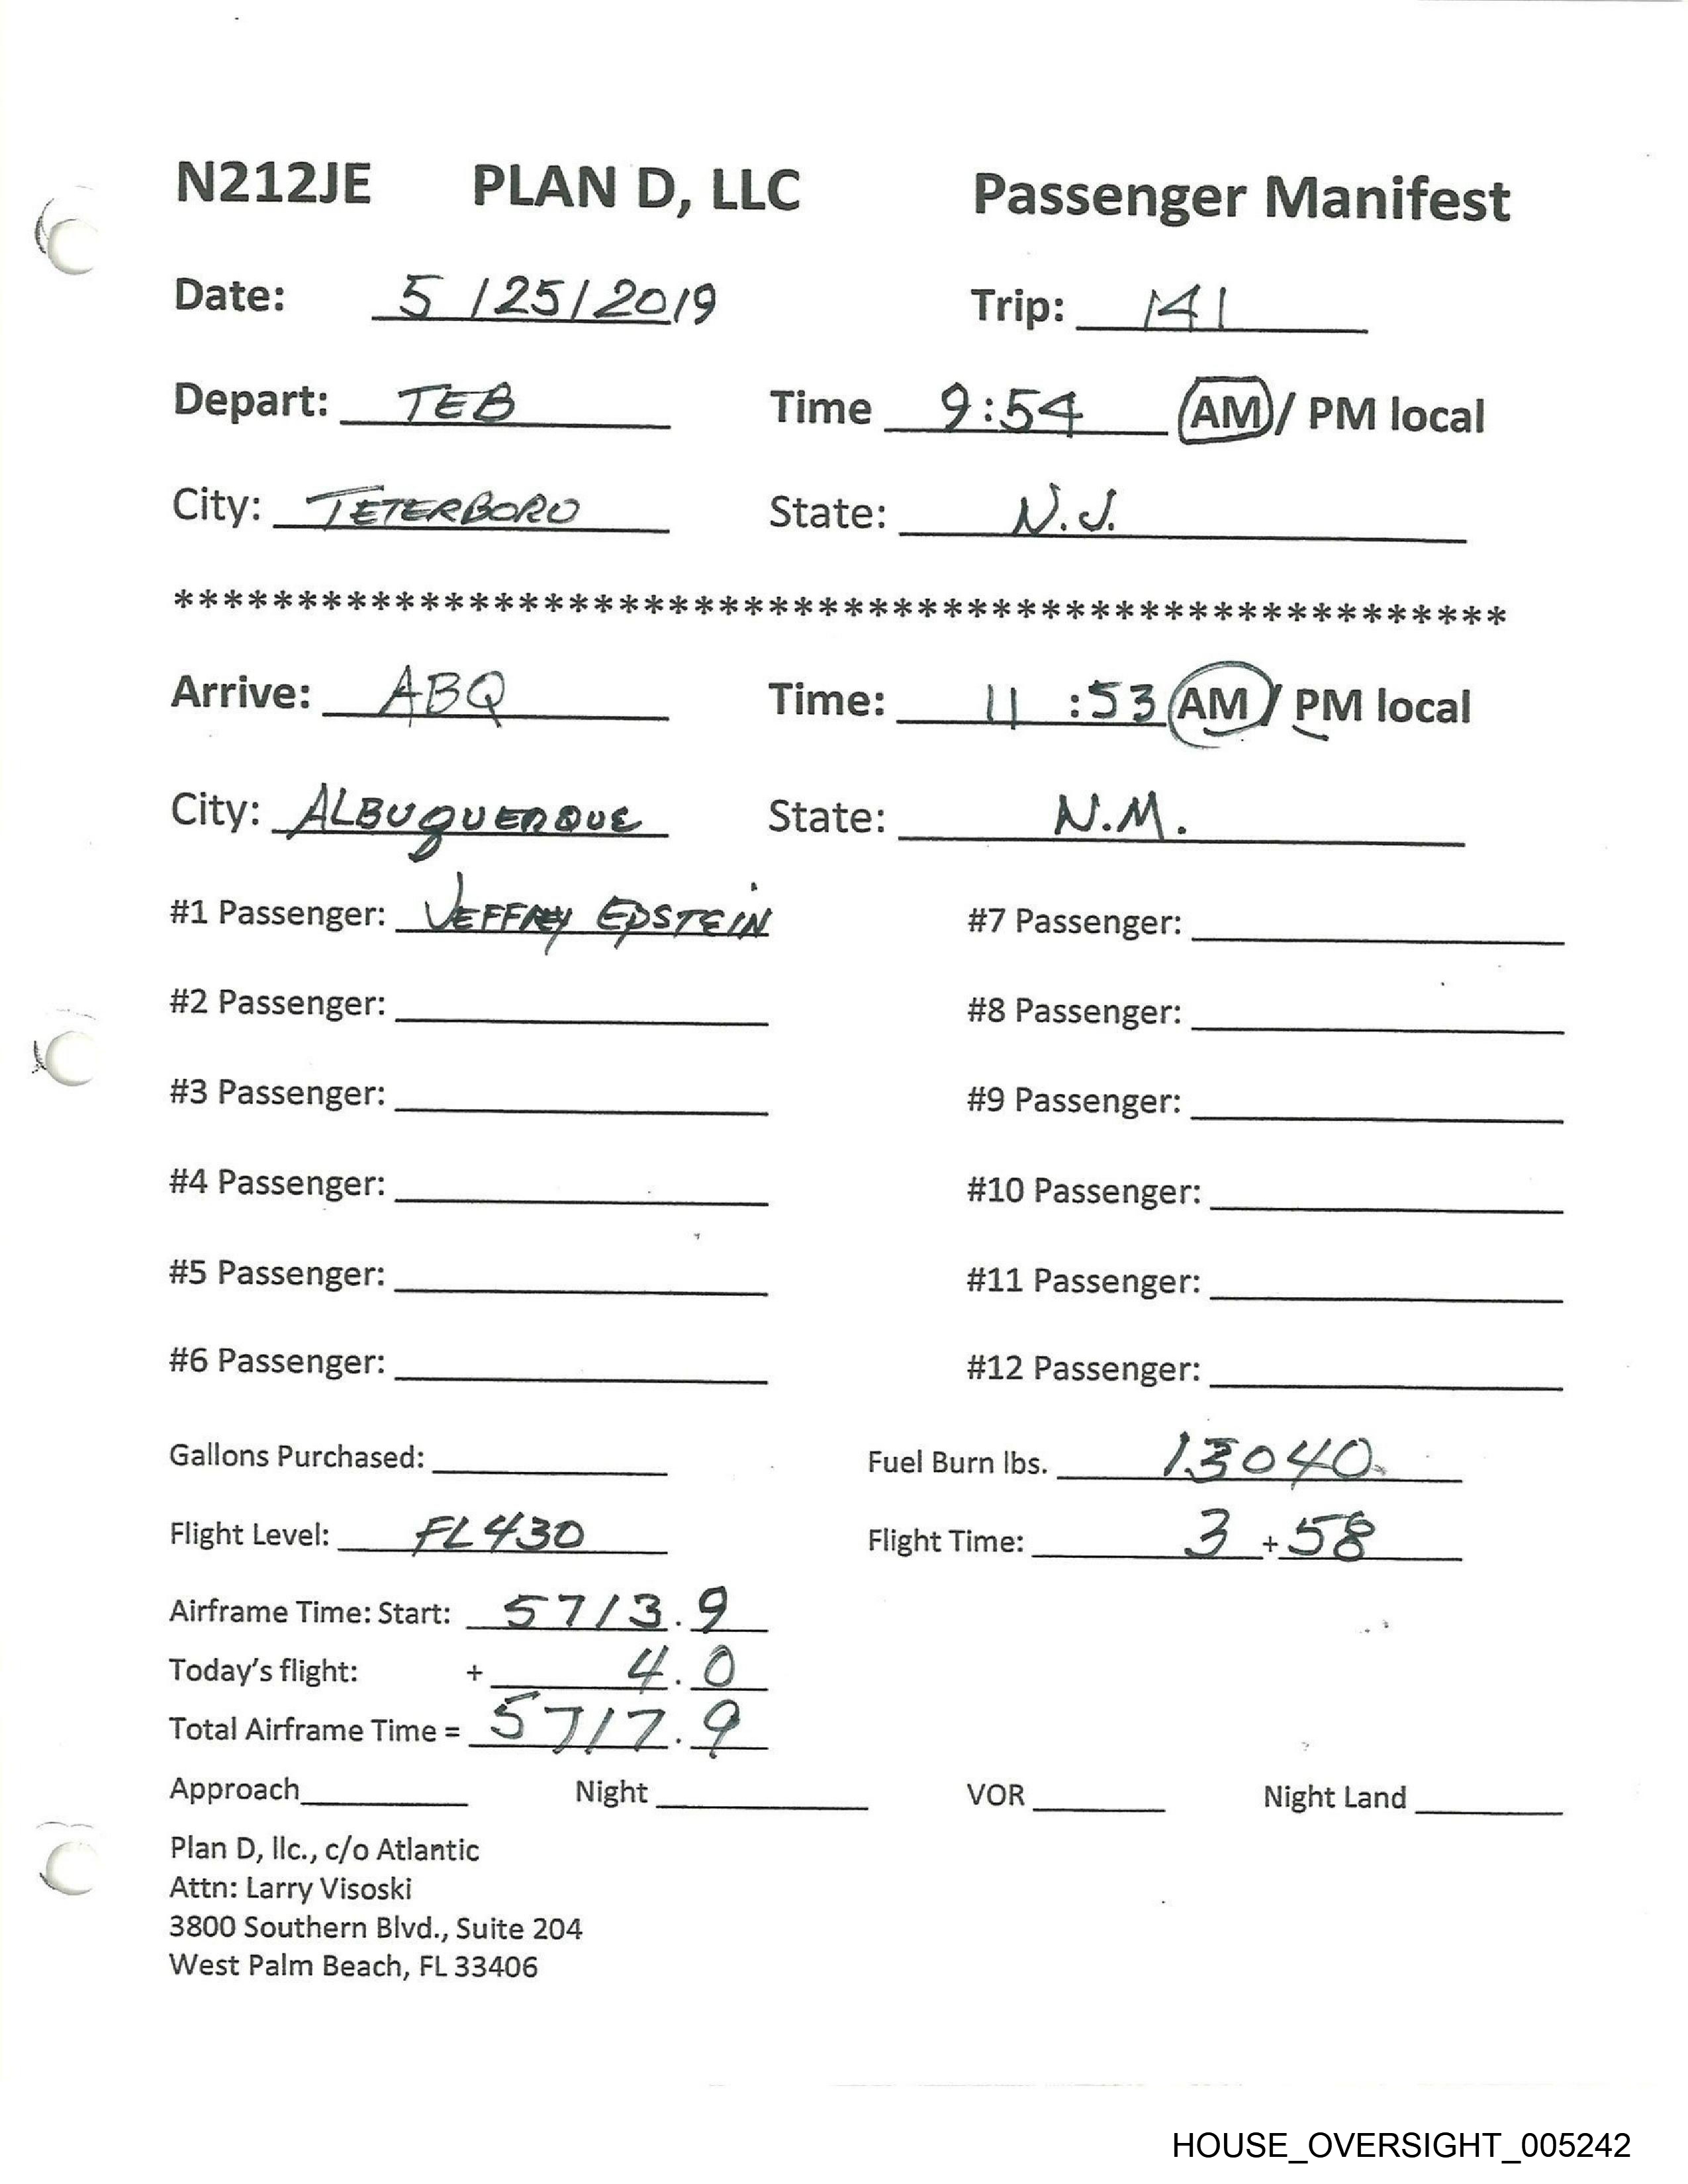 N212JE PLAN D, LLC Passenger Manifest
Date: 5 / 25 / 2019 Trip: 141
Depart: TEB Time 9:54 AM / PM local
City: TETERBORO State: N.J.
******************************************************
Arrive: ABQ Time: 11 :53 AM / PM local
City: ALBUQUERQUE State: N.M.
#1 Passenger: JEFFREY EPSTEIN #7 Passenger:
#2 Passenger: #8 Passenger:
#3 Passenger: #9 Passenger:
#4 Passenger: #10 Passenger:
#5 Passenger: #11 Passenger:
#6 Passenger: #12 Passenger:
Gallons Purchased: Fuel Burn lbs. 13040
Flight Level: FL430 Flight Time: 3 + 58
Airframe Time: Start: 5713.9
Today's flight: + 4.0
Total Airframe Time = 5717.9
Approach Night VOR Night Land
Plan D, llc., c/o Atlantic
Attn: Larry Visoski
3800 Southern Blvd., Suite 204
West Palm Beach, FL 33406
HOUSE_OVERSIGHT_005242